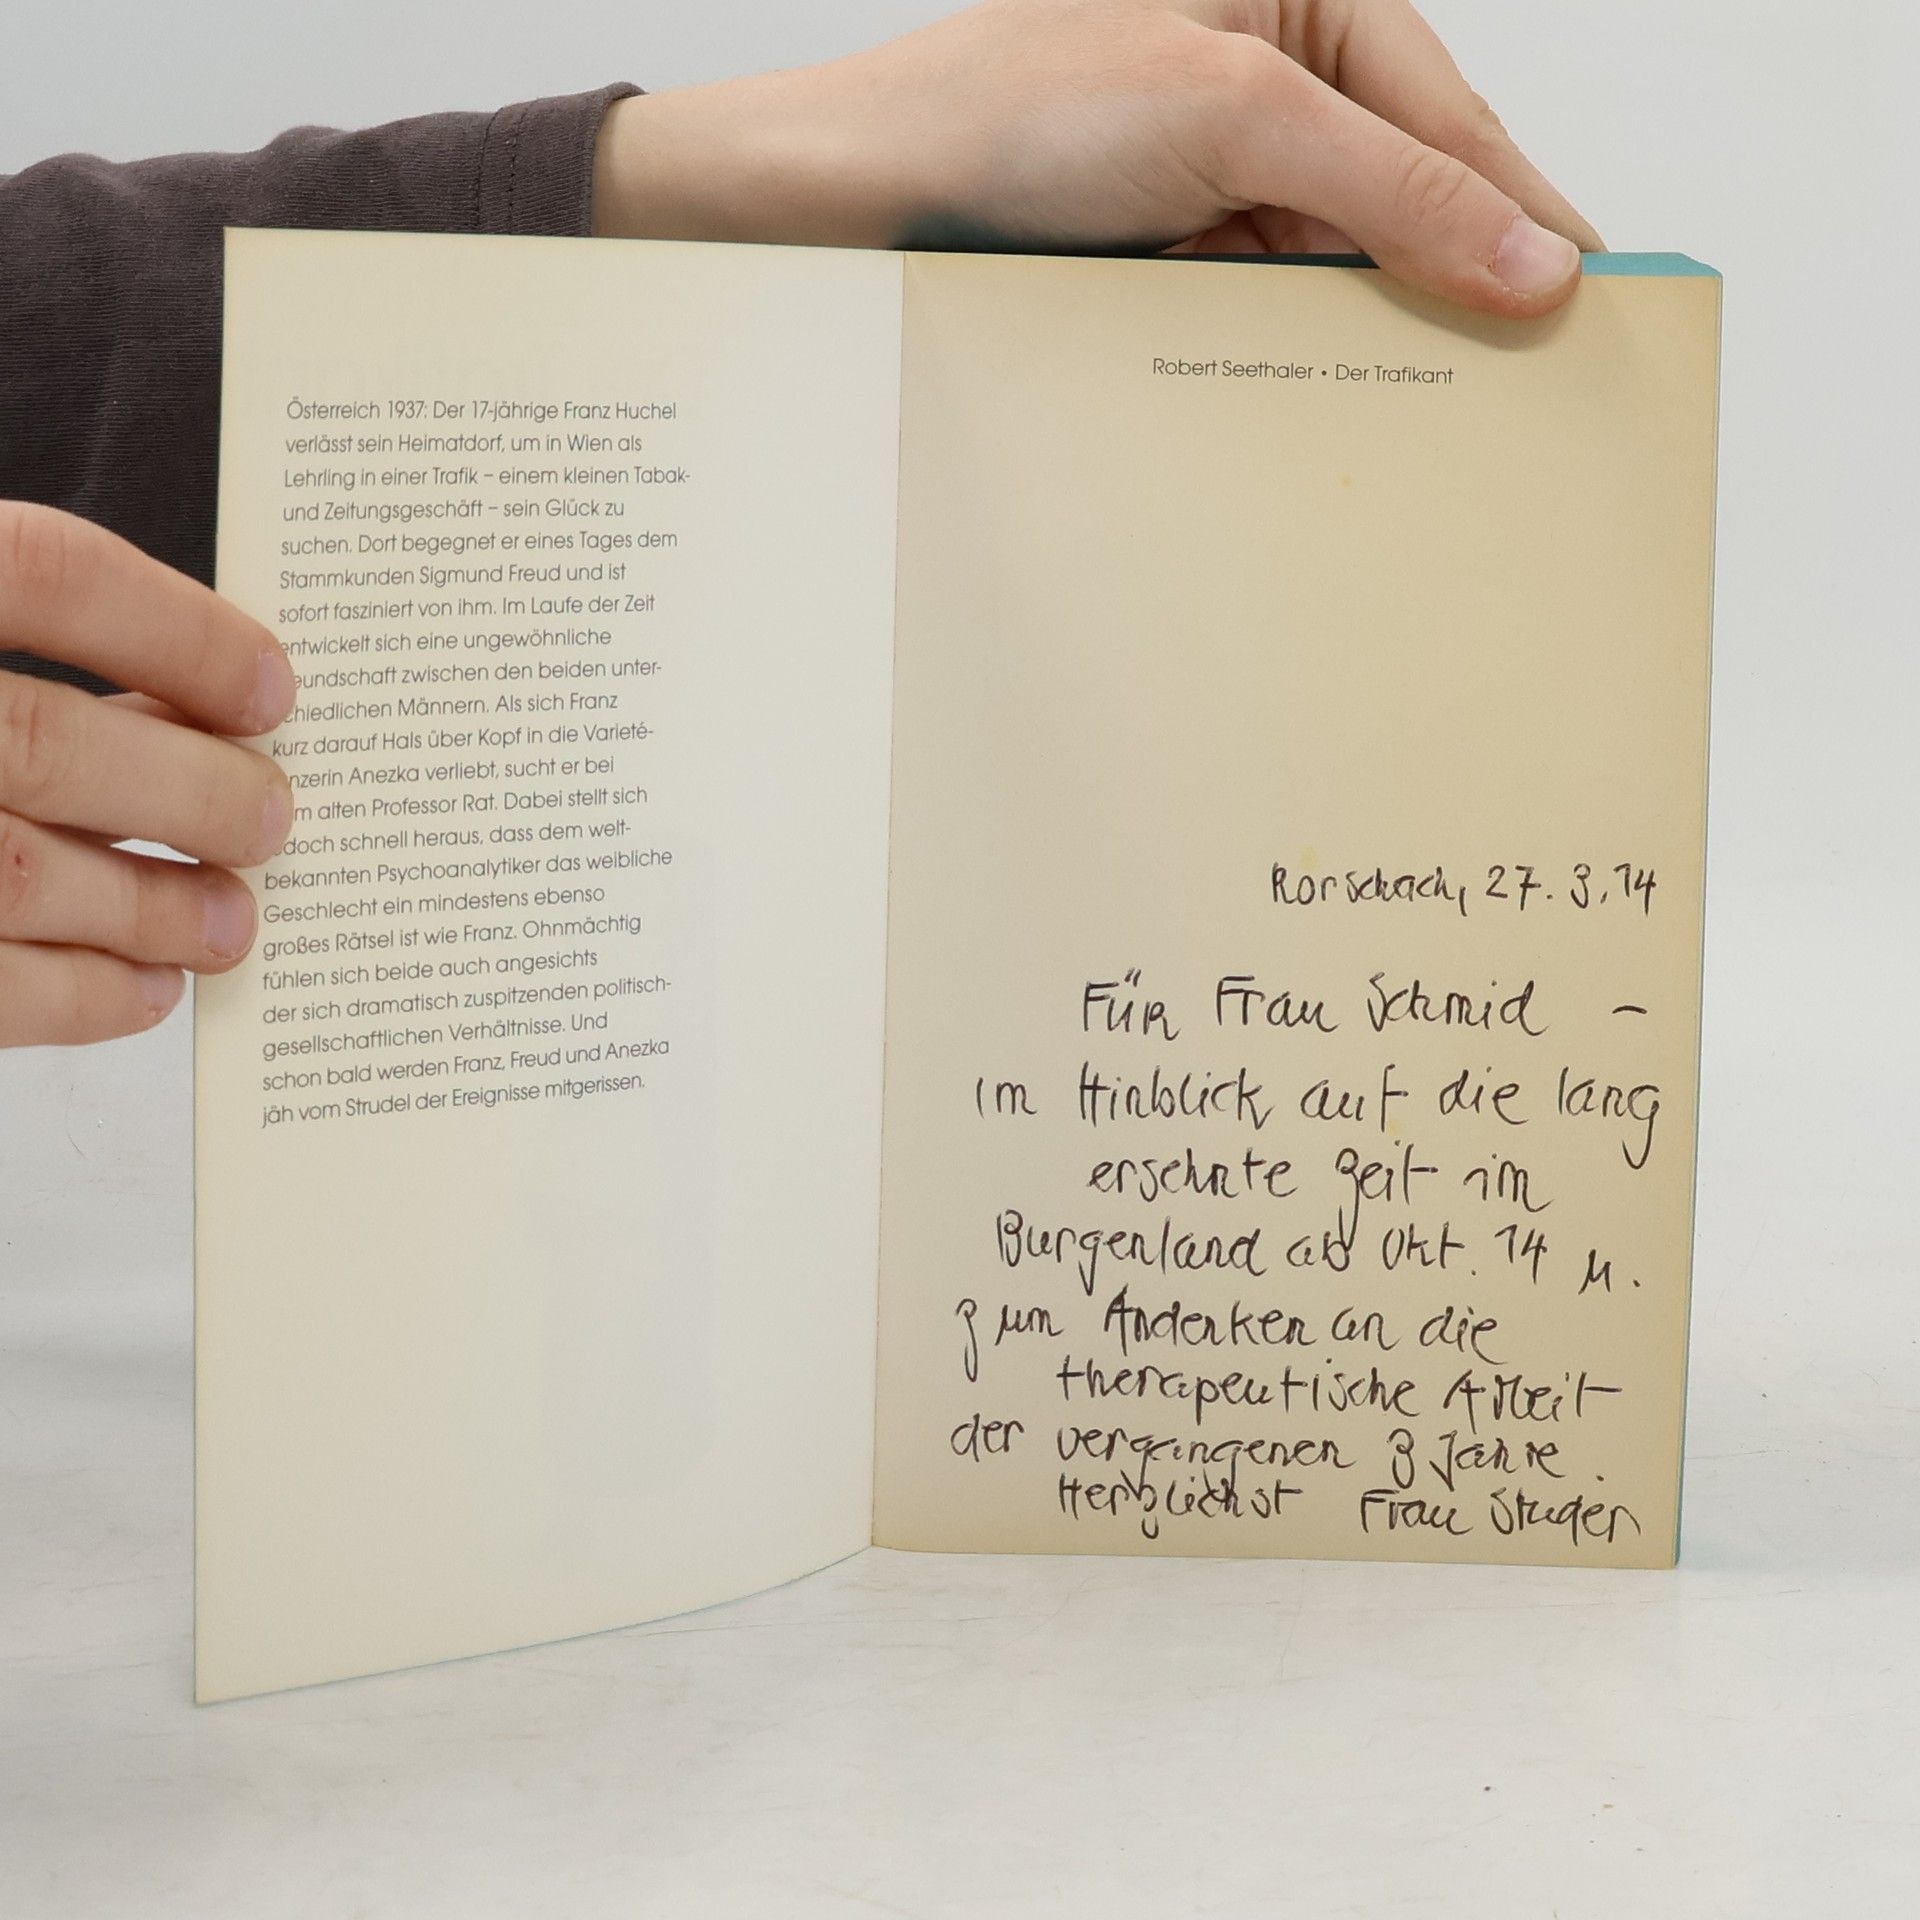 Österreich 1937: Der 17-jährige Franz Huchel
verlässt sein Heimatdorf, um in Wien als
Lehrling in einer Trafik – einem kleinen Tabak-
und Zeitungsgeschäft – sein Glück zu
suchen. Dort begegnet er eines Tages dem
Stammkunden Sigmund Freud und ist
sofort fasziniert von ihm. Im Laufe der Zeit
entwickelt sich eine ungewöhnliche
eundschaft zwischen den beiden unter-
chiedlichen Männern. Als sich Franz
kurz darauf Hals über Kopf in die Varieté-
nzerin Anezka verliebt, sucht er bei
m alten Professor Rat. Dabei stellt sich
doch schnell heraus, dass dem welt-
bekannten Psychoanalytiker das weibliche
Geschlecht ein mindestens ebenso
großes Rätsel ist wie Franz. Ohnmächtig
fühlen sich beide auch angesichts
der sich dramatisch zuspitzenden politisch-
gesellschaftlichen Verhältnisse. Und
schon bald werden Franz, Freud und Anezka
jäh vom Strudel der Ereignisse mitgerissen.
Robert Seethaler • Der Trafikant
Rorschach, 27. 3. 14
Für Frau Schmid –
im Hinblick auf die lang
ersehnte Zeit im
Burgenland ab Okt. 14 u.
zum Andenken an die
therapeutische Arbeit
der vergangenen 3 Jahre.
Herzlichst Frau Studer